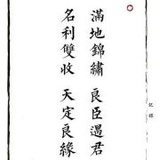 滿地錦繡　良臣遇君
名利雙收　天定良緣